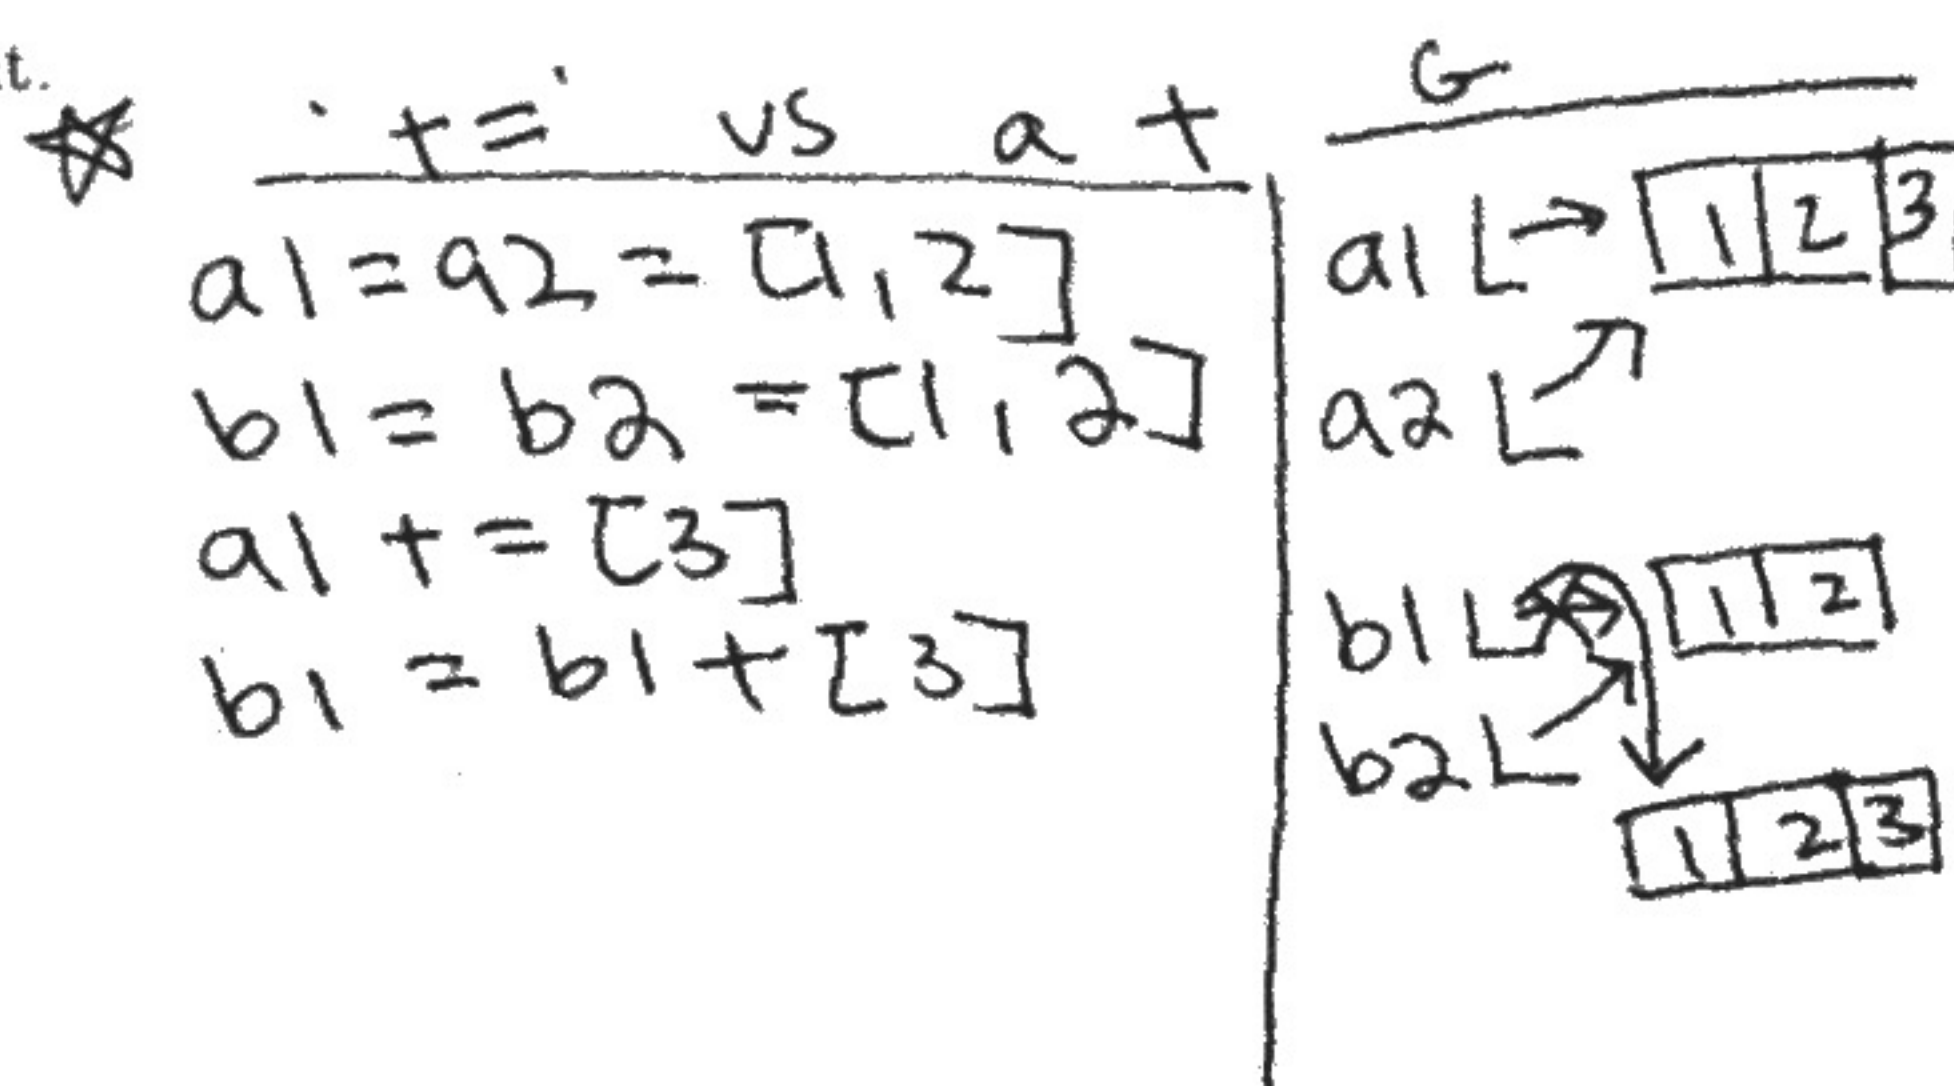 t.
'+=' vs a +
a1 = a2 = [1, 2]
b1 = b2 = [1, 2]
a1 += [3]
b1 = b1 + [3]
G
a1 1 2 3
a2
b1 1 2
b2
1 2 3